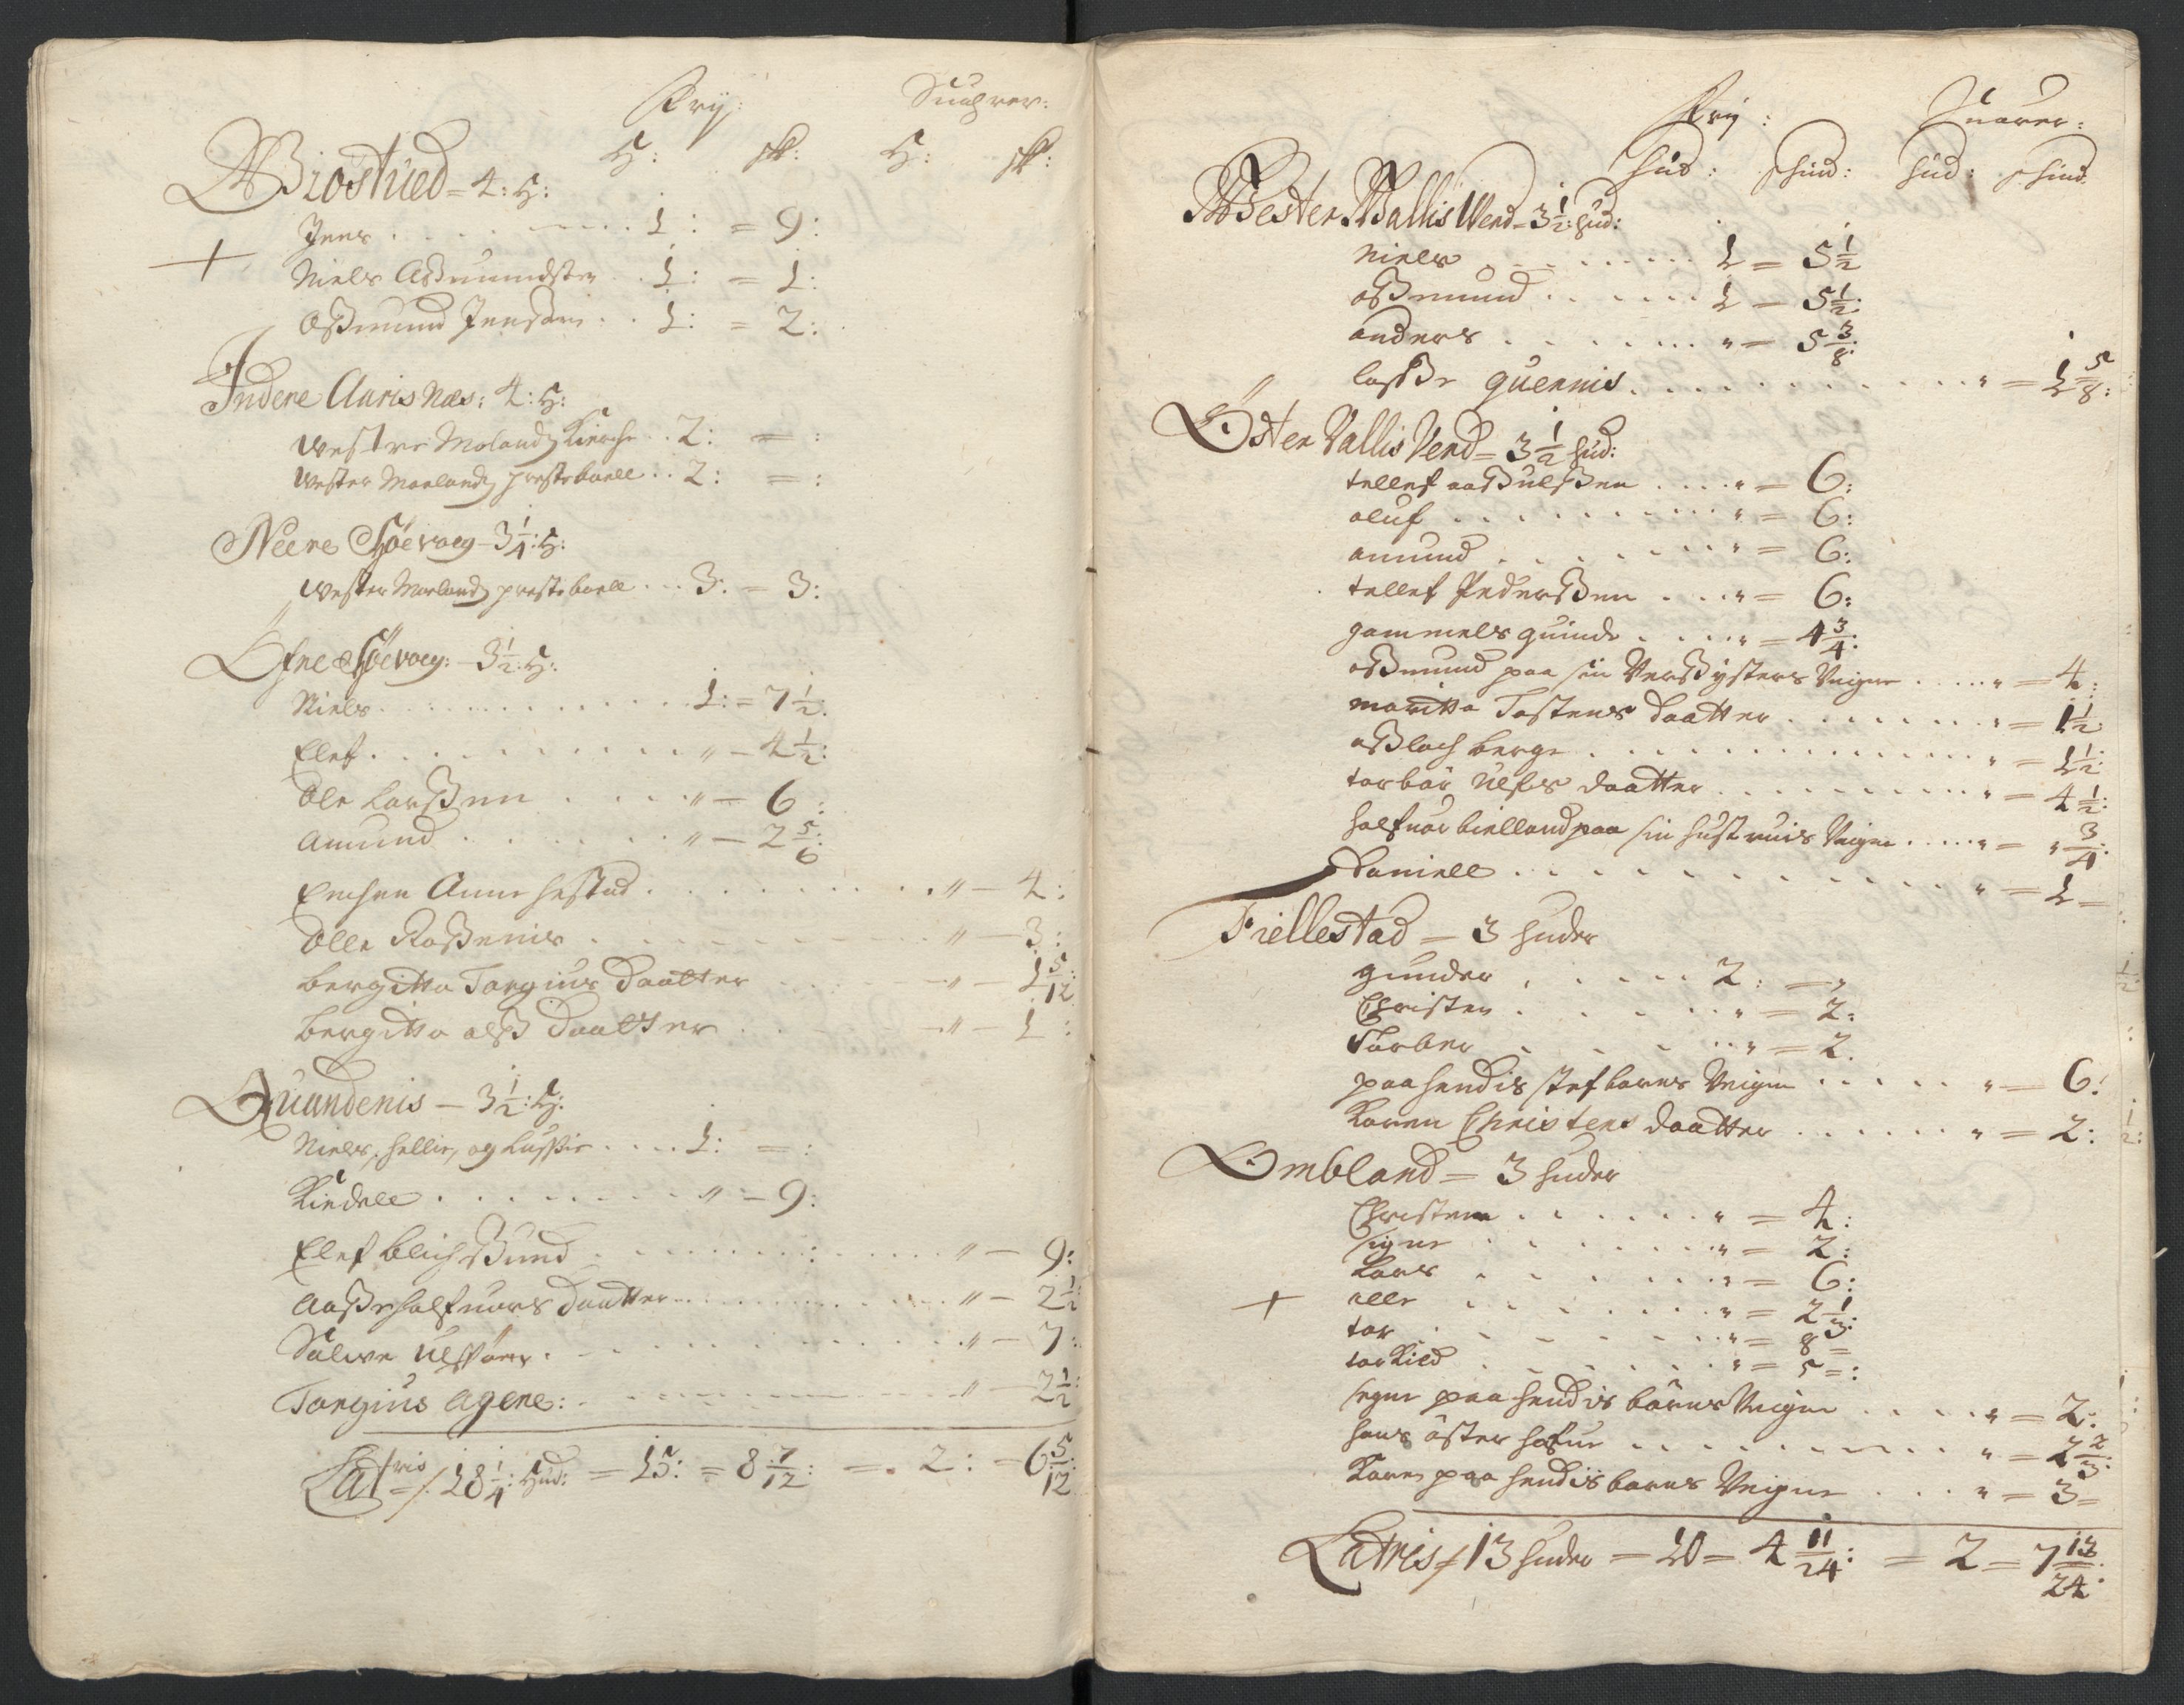 Frij: Suarer:
H: sk: H: sk:
Biostued = 4: H:
Jens . . . . 1: = 9:
+ Niels Aßmundsen . . 1: = 1:
Oßmund Jensen . . 1: = 2:
Indere Claris Næs: 4: H:
Westre Molandz Kierche . . 2: = :
Wester Moelandz prestebuell . . 2: = :
Neere Høevaag - 3 1/4: H:
Wester Morlandz prestebuell . . . 3: = 3:
Øfre Høevaag: - 3 1/2: H:
Niels . . . . 1: = 7 1/2:
Elef . . . . " - 4 1/2:
Ole Larßen . . . . " - 6:
Amund . . . . " - 2 5/6:
Enchen Anne hestad . . . . " - 4:
Olle Roßenis . . . . " - 3:
Bergitta Torgius Daatter . . . . " - 1 5/12:
Bergitta olß Daatter . . . . " - 1:
Quandenis - 3 1/2: H:
Niels, hellie, og Lußie . . . . 1: = :
Kiedell . . . . " - 9:
Elef Blichßund . . . . " - 9:
Aaße halfuors Daatter . . . . " - 2 1/2:
Salve Ulføen . . . . " - 7:
Torgius Agere: . . . . " - 2 1/2:
Latris /: 18 1/4: Hud: = 15: = 8 7/12: = 2: - 6 5/12
Frij: Suarer:
Hud: Skind: Hud: Skind
Wester Wallis Werd = 3 1/2: Hud:
Niels . . . . 1 = 5 1/2
oßmund . . . . 1 = 5 1/2:
anders . . . . " = 5 3/8:
laße quennis . . . . " = 1 5/8:
Øster Vallis Verd = 3 1/2 Hud:
tellef aaßulßen . . . . " = 6:
oluf . . . . " = 6:
amund . . . . " = 6:
tellef Pederßen . . . . " = 6:
gammels quinde . . . . " = 4 3/4:
oßmund paa sin Verßysters Veigne . . . . " = 4:
maritta Tostens daatter . . . . " = 1 1/2
aßlach berge . . . . " = 1 1/2:
torbør Ulfs daatter . . . . " = 4 1/2:
halfuor bielland paa sin hustruis Veigne . . . . " = " 3/4:
Daniell . . . . " = 1 -
Fiellestad = 3 huder
gunder . . . . 2: = "
Christen . . . . " = 2:
Torber . . . . " = 2.
paa hendis stefbarns Veigne . . . . " = 6:
Karen Christens daatter . . . . " = 2:
Ombland = 3 huder
Christen . . . . " = 4:
signe . . . . " = 2:
Lars . . . . " = 6:
+ olle . . . . " = 2 1/3:
tor . . . . " = 8 =
torkild . . . . " = 5 = :
segne paa hendis børns Veigne . . . . " = 2:
hans øster hafue . . . . " = 2 2/3:
Karen paa hendis barns Veigne . . . " = 3 =
Latris /: 13 huder = 10 = 4 11/24: = 2 = 7 13/24: